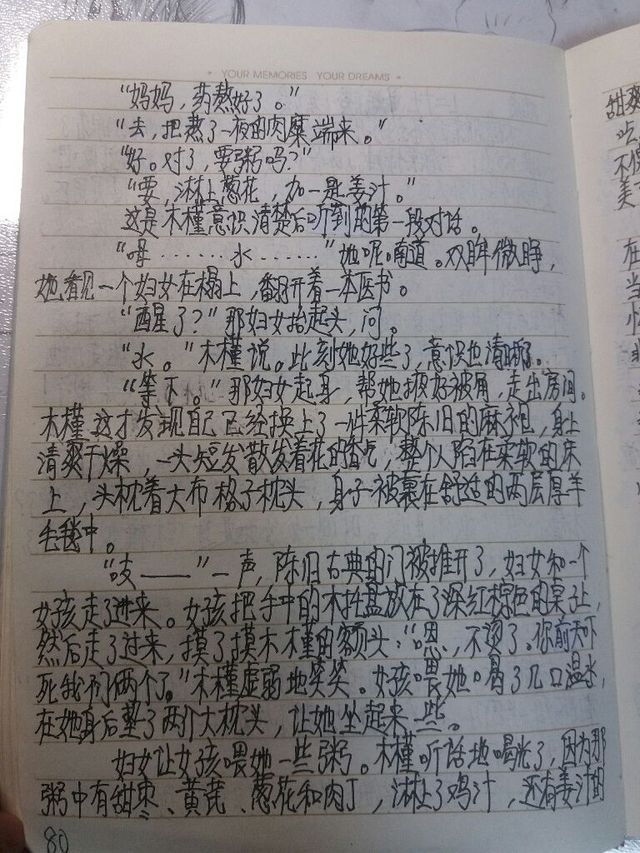 YOUR MEMORIES YOUR DREAMS
“妈妈，药熬好了。”
“去，把熬了一夜的肉糜端来。”
“好。对了，要粥吗？”
“要，淋上葱花，加一匙姜汁。”
这是木槿意识清楚后听到的第一段对话。
“母………水………”她呢喃道。双眸微睁，
她看见一个妇女在榻上，翻开着一本医书。
“醒了？”那妇女抬起头，问。
“水。”木槿说。此刻她好些了，意识也清晰了。
“等下。”那妇女起身，帮她掖好被角，走出房间。
木槿这才发现自己已经换上了一件柔软陈旧的麻袍，身上
清爽干燥，一头短发散发着花的香气，整个人陷在柔软的床
上，头枕着大布格子枕头，身子被裹在舒适的两层厚羊
毛毯中。
“吱——”一声，陈旧古典的门被推开了，妇女和一个
女孩走了进来。女孩把手中的木托盘放在了深红棕色的桌子上，
然后走了过来，摸了摸木槿的额头：“嗯，不烫了。你前天吓
死我们俩个了。”木槿虚弱地笑笑。女孩喂她喝了几口温水，
在她身后垫了两个大枕头，让她坐起来一些。
妇女让女孩喂她一些粥。木槿听话地喝光了，因为那
粥中有甜枣、黄芪、葱花和肉丁，淋上了鸡汁，还有姜汁的
80
甜爽
吃
不
美
在
当